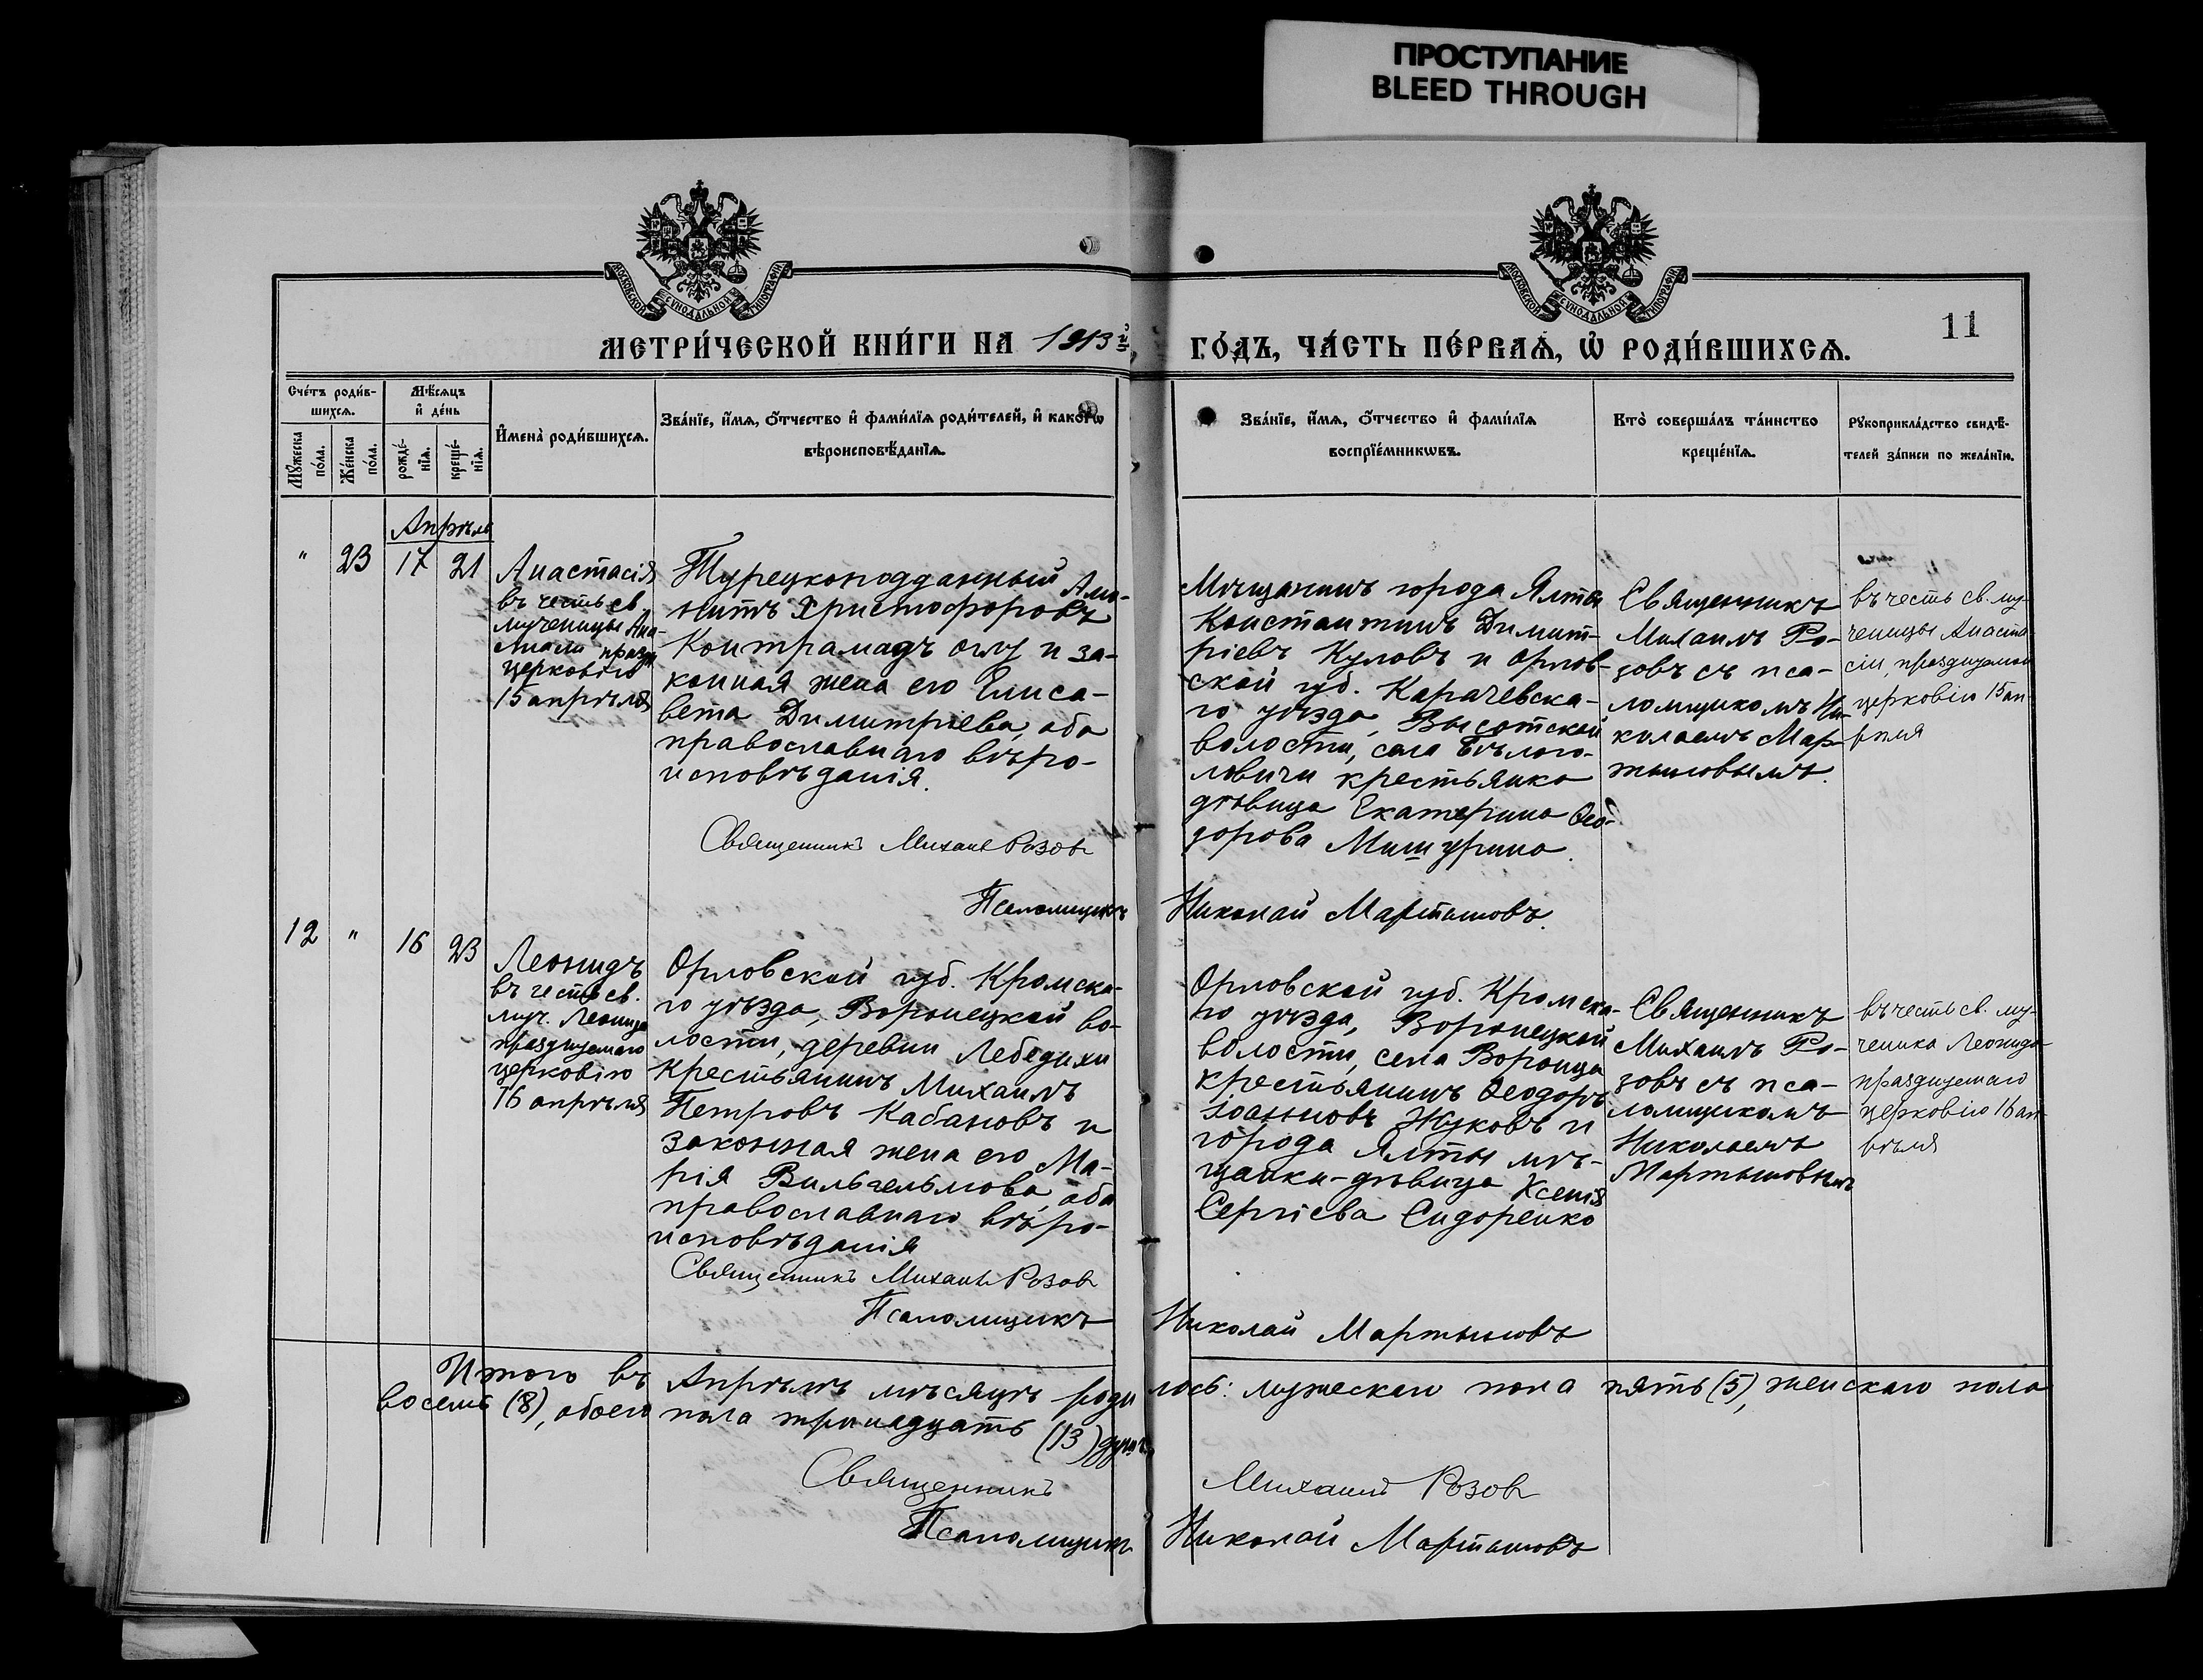 ПРОСТУПАНИЕ
BLEED THROUGH
МОСКОВСКОЙ СѴНОДАЛЬНОЙ ТИПОГРАФІИ
МОСКОВСКОЙ СѴНОДАЛЬНОЙ ТИПОГРАФІИ
11
МЕТРИ́ЧЕСКОЙ КНИ́ГИ НА 1913й
ГО́ДЪ, ЧА́СТЬ ПЕ́РВАѦ, Ѡ РОДИ́ВШИХСѦ.
Сче́тъ роди́в-
шихсѧ.
Мꙋ́жеска
по́ла.
Же́нска
по́ла.
Мѣ́сѧцъ
и҆ де́нь
рожде́-
нїѧ.
креще́-
нїѧ.
И҆мена̀ роди́вшихсѧ.
Зва́нїе, и҆́мѧ, ѻ҆́тчество и҆ фами́лїѧ роди́телей, и҆ како́гѡ
вѣроисповѣ́данїѧ.
Зва́нїе, и҆́мѧ, ѻ҆́тчество и҆ фами́лїѧ
воспрїе́мникѡвъ.
Кто̀ соверша́лъ та́инство
креще́нїѧ.
Рꙋкоприкла́дство свидѣ́-
телей за́писи по жела́нїю.
Апрѣль
" 23 17 21
Анастасія
въ честь св.
мученицы Ана-
стасіи празд.
церковію
15 апрѣля
Турецкоподданный
нитъ Христофоровъ
Контрамадъ оглу и за-
конная жена его Елиса-
вета Димитріева, оба
православнаго вѣро-
исповѣданія.
Священникъ Михаил Розов
Псаломщикъ
Мѣщанинъ города Ялты
Константинъ Димит-
ріевъ Куловъ и Орлов-
ской губ. Карачевска-
го уѣзда, Высотской
волости, села Бѣлого-
ловичи крестьянка
дѣвица Екатерина Ѳео-
дорова Мишурина.
Николай Мартыновъ.
Священникъ
Михаилъ Ро-
зовъ съ пса-
ломщикомъ Ни-
колаемъ Мар-
тыновымъ.
въ честь св. му-
ченицы Анаста-
сіи, празднуемой
церковію 15 ап-
рѣля
12 " 16 23
Леонидъ
въ честь св.
муч. Леонида
празднуемаго
церковію
16 апрѣля
Орловской губ. Кромска-
го уѣзда, Воронецкой во-
лости, деревни Лебедихи
крестьянинъ Михаилъ
Петровъ Кабановъ и
законная жена его Ма-
рія Вильгельмова, оба
православнаго вѣро-
исповѣданія
Священникъ Михаилъ Розов
Псаломщикъ
Орловской губ. Кромска-
го уѣзда, Воронецкой
волости, села Воронца
крестьянинъ Ѳеодоръ
Іоанновъ Жуковъ и
города Ялты мѣ-
щанка-дѣвица Ксенія
Сергіева Сидоренко
Николай Мартыновъ
Священникъ
Михаилъ Ро-
зовъ съ пса-
ломщикомъ
Николаемъ
Мартыновымъ
въ честь св. му-
ченика Леонида
празднуемаго
церковію 16 ап-
рѣля
Итого въ Апрѣлѣ мѣсяцѣ родилось: мужескаго пола пять (5), женскаго пола
восемь (8), обоего пола тринадцать (13) душъ
Священникъ Михаилъ Розов
Псаломщикъ Николай Мартыновъ